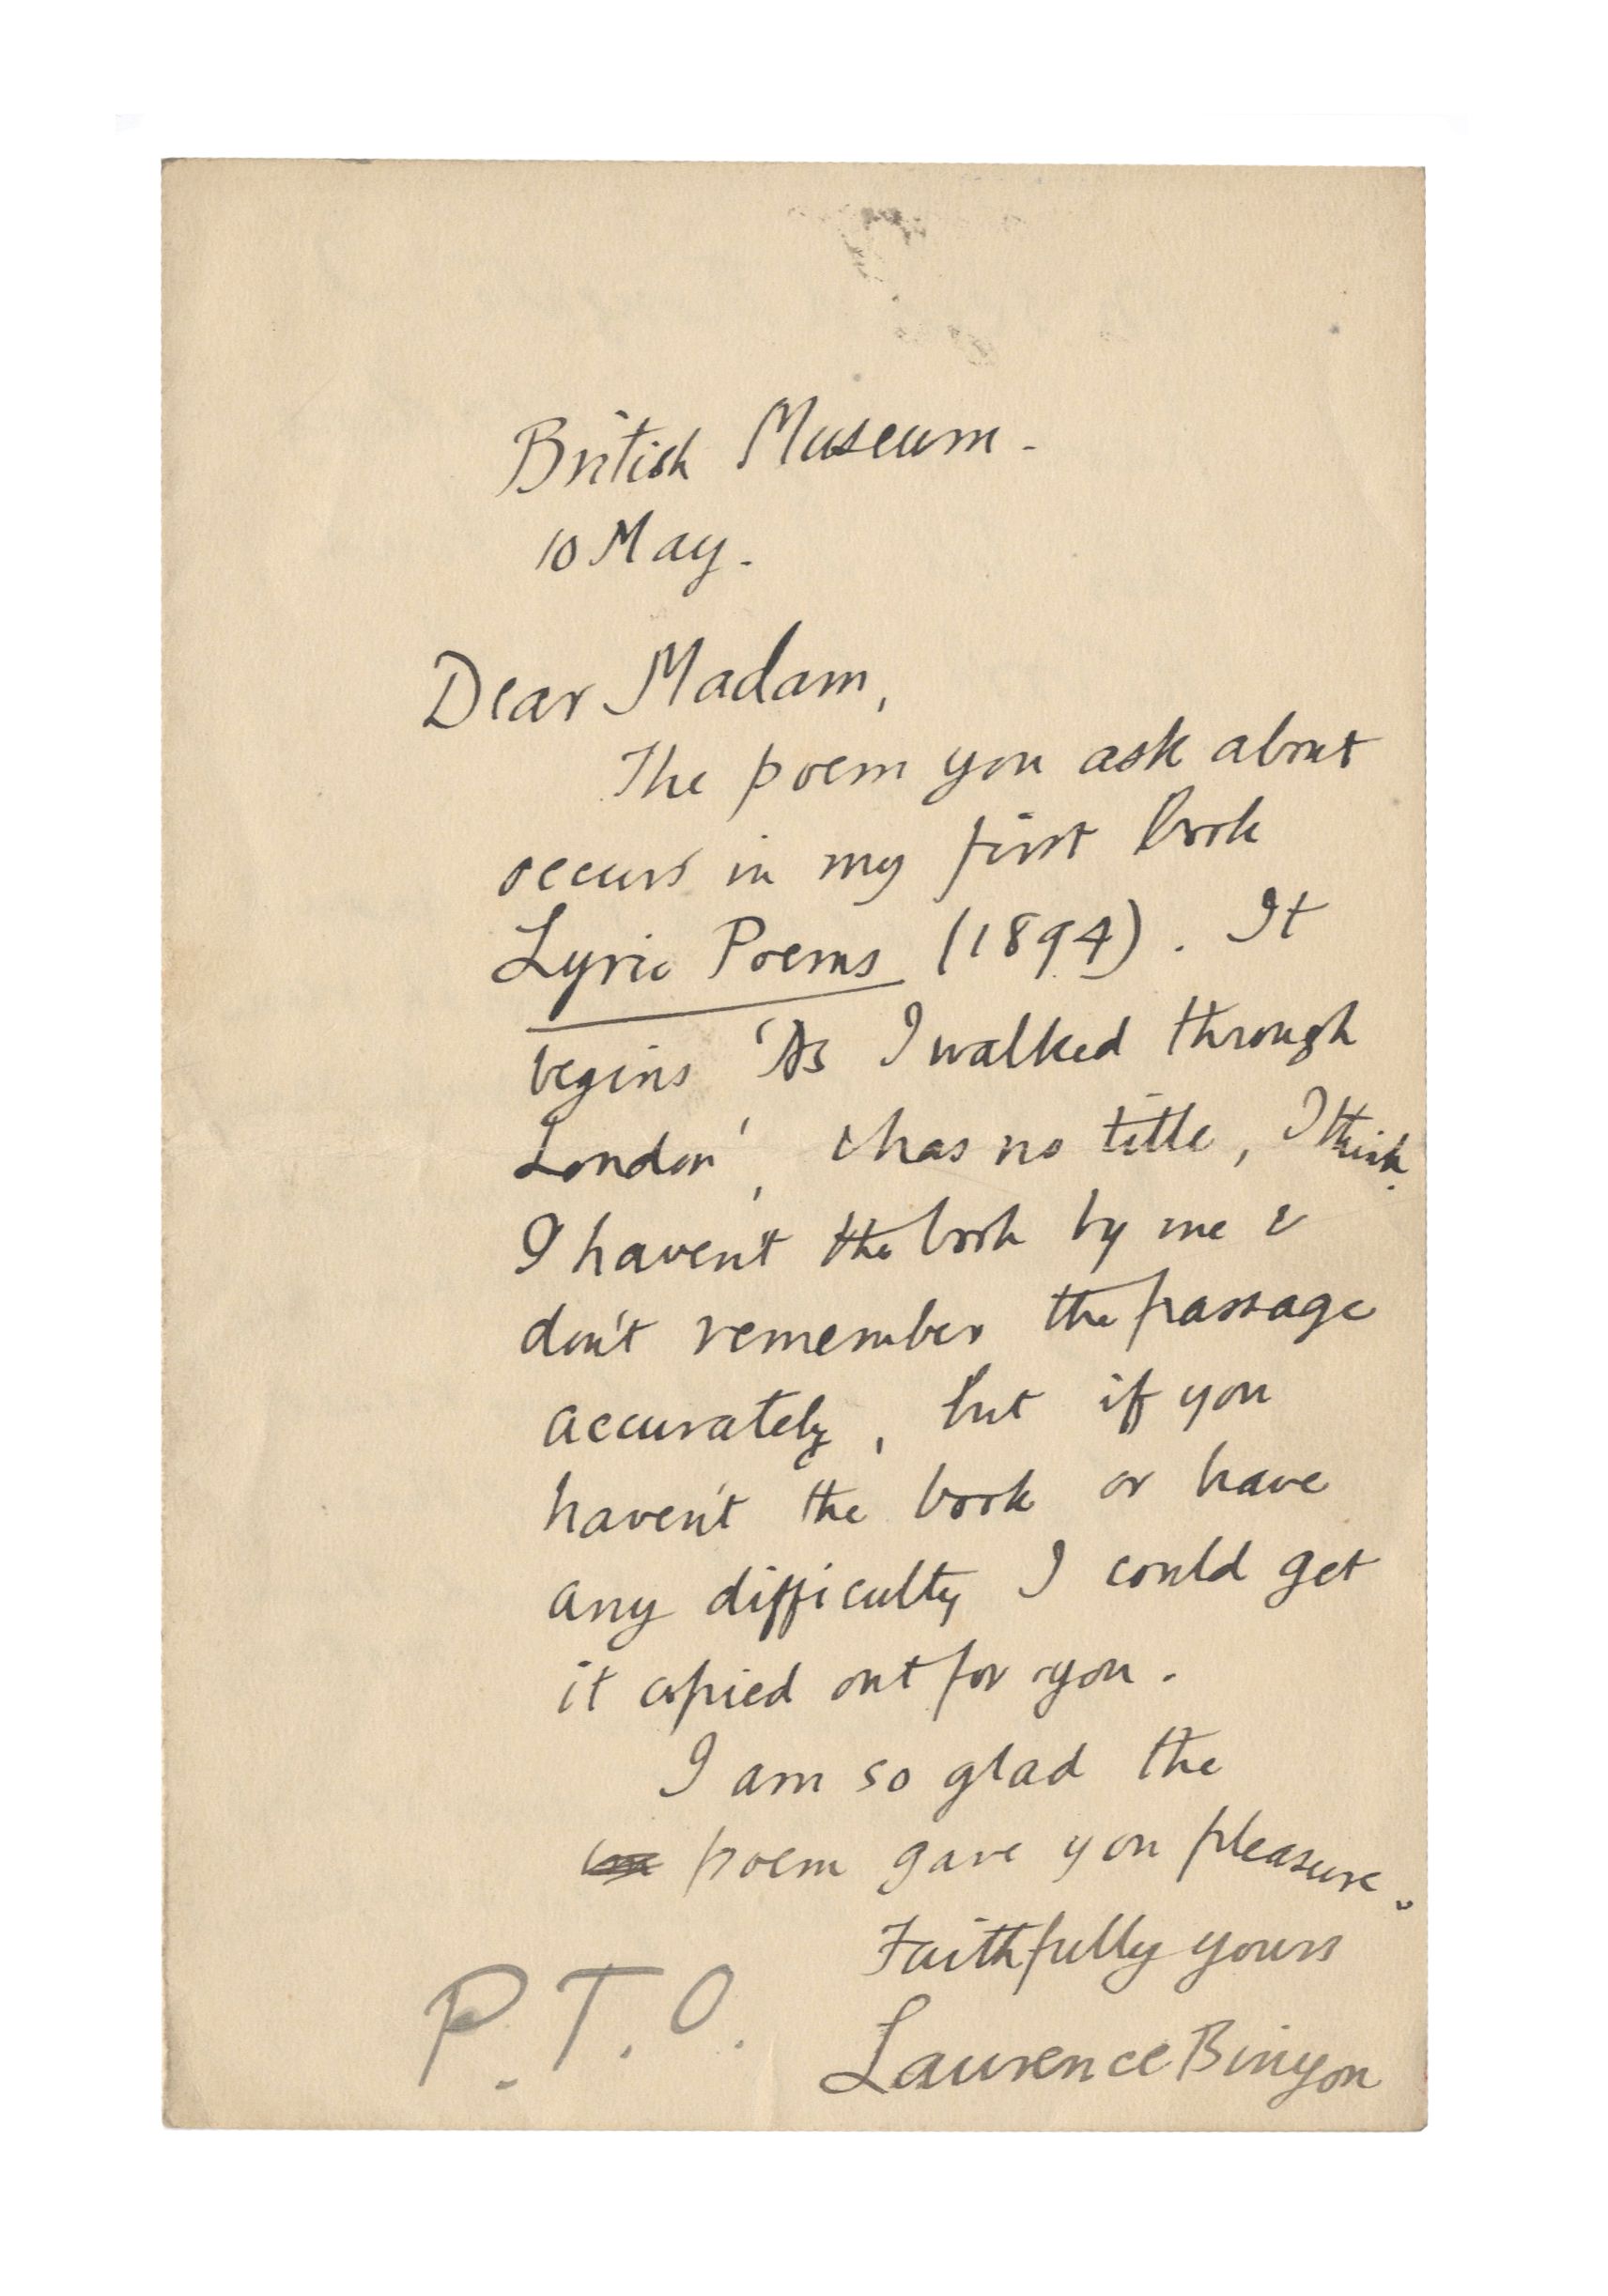 British Museum.
10 May.
Dear Madam,
The poem you ask about
occurs in my first book
Lyric Poems (1894). It
begins 'As I walked through
London', & has no title, I think.
I haven't the book by me &
don't remember the passage
accurately, but if you
haven't the book or have
any difficulty I could get
it copied out for you.
I am so glad the
poem gave you pleasure.
Faithfully yours
Laurence Binyon
P.T.O.